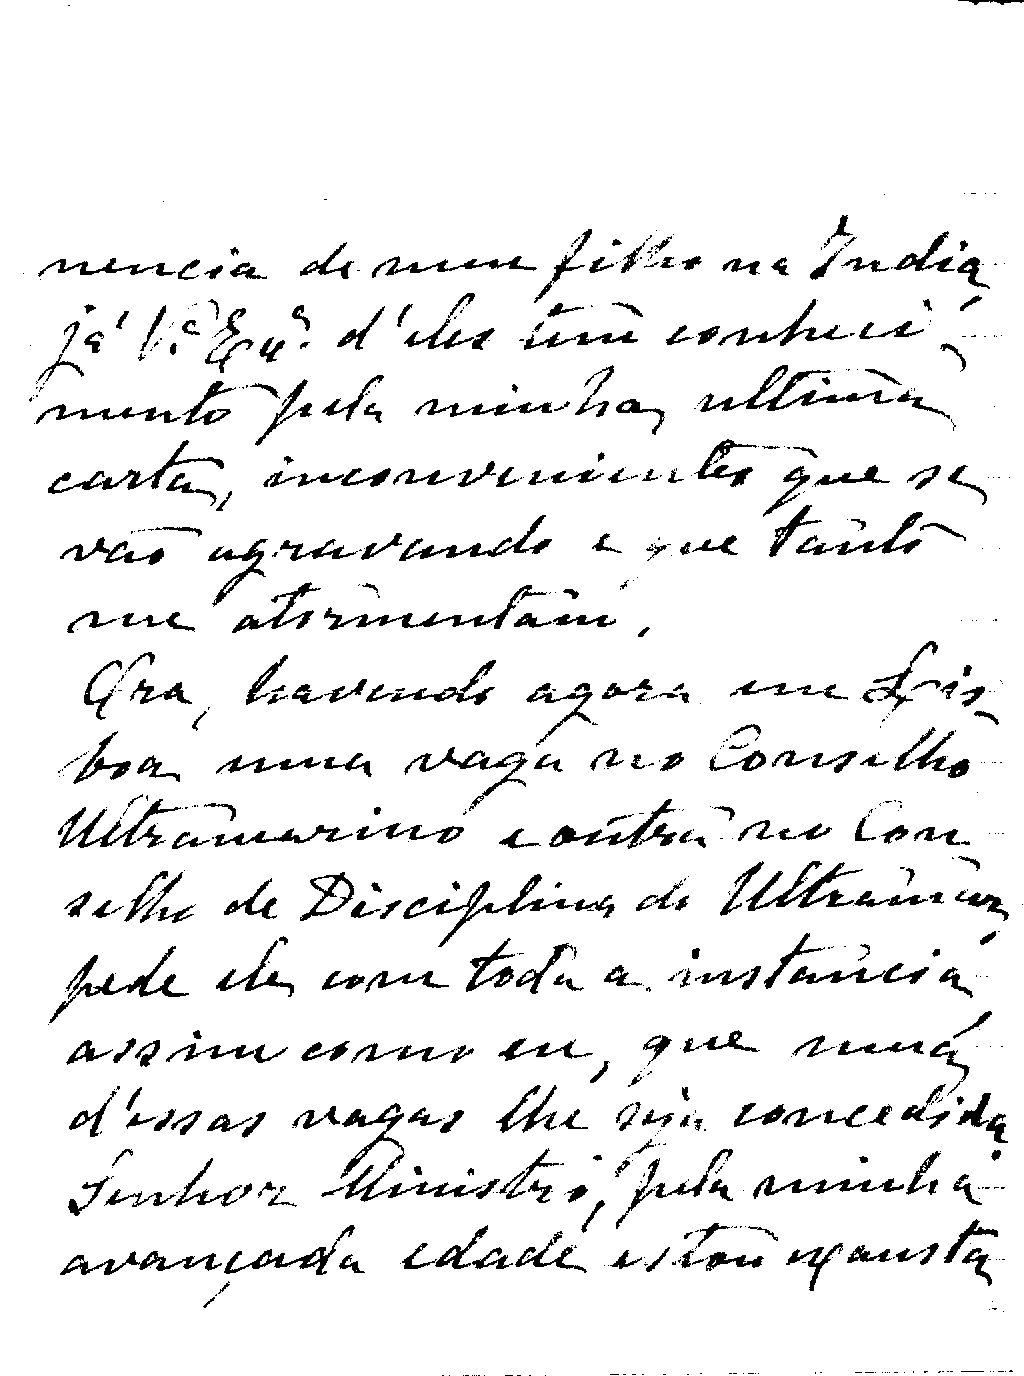 nencia de meu filho na India
já V.ª Ex.ª d'eles tem conheci-
mento pela minha ultima
carta, inconvenientes que se
vão agravando e que tanto
me atormentam.
Ora, havendo agora em Lis-
boa uma vaga no Conselho
Ultramarino e outra no Con
selho de Disciplina do Ultramar,
pede ele com toda a instancia
assim como eu, que uma
d'essas vagas lhe seja concedida
Senhor Ministro, pela minha
avançada edade estou exausta